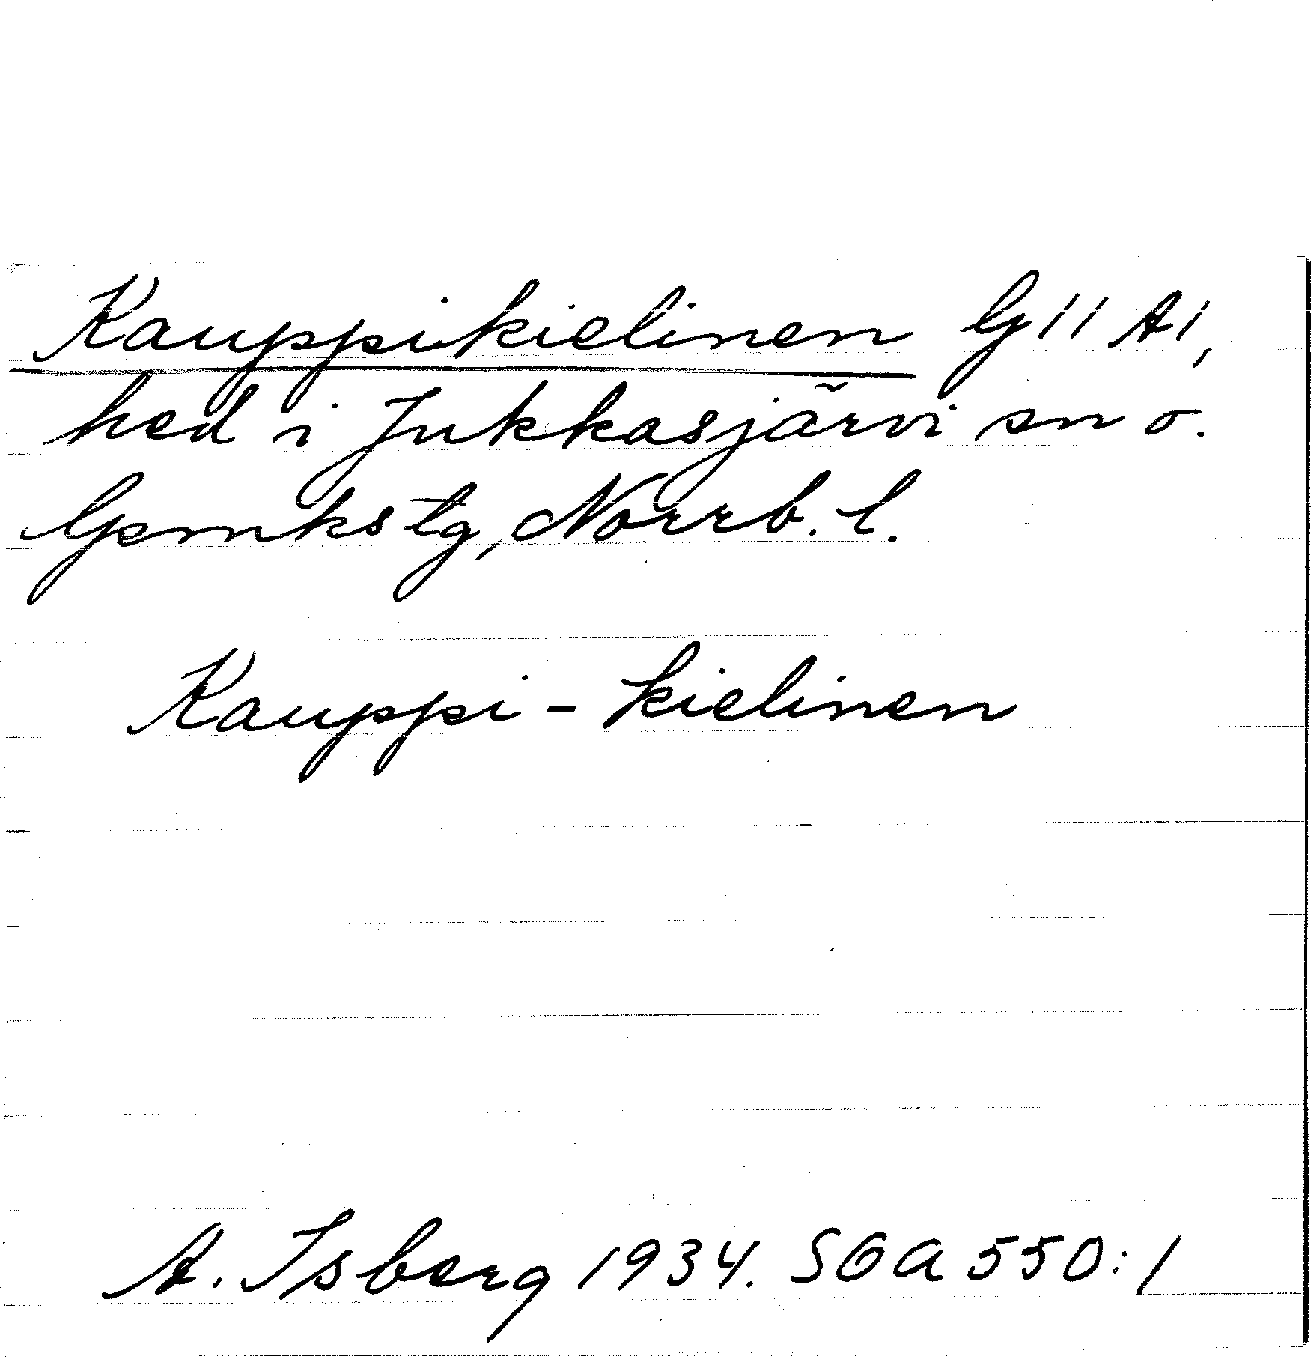 Kauppikielinen G11 A1,
hed i Jukkasjärvi sn o.
Gsmkstg, Norrb. l.
Kauppi - kielinen
A. Isberg 1934. SOA 550:1